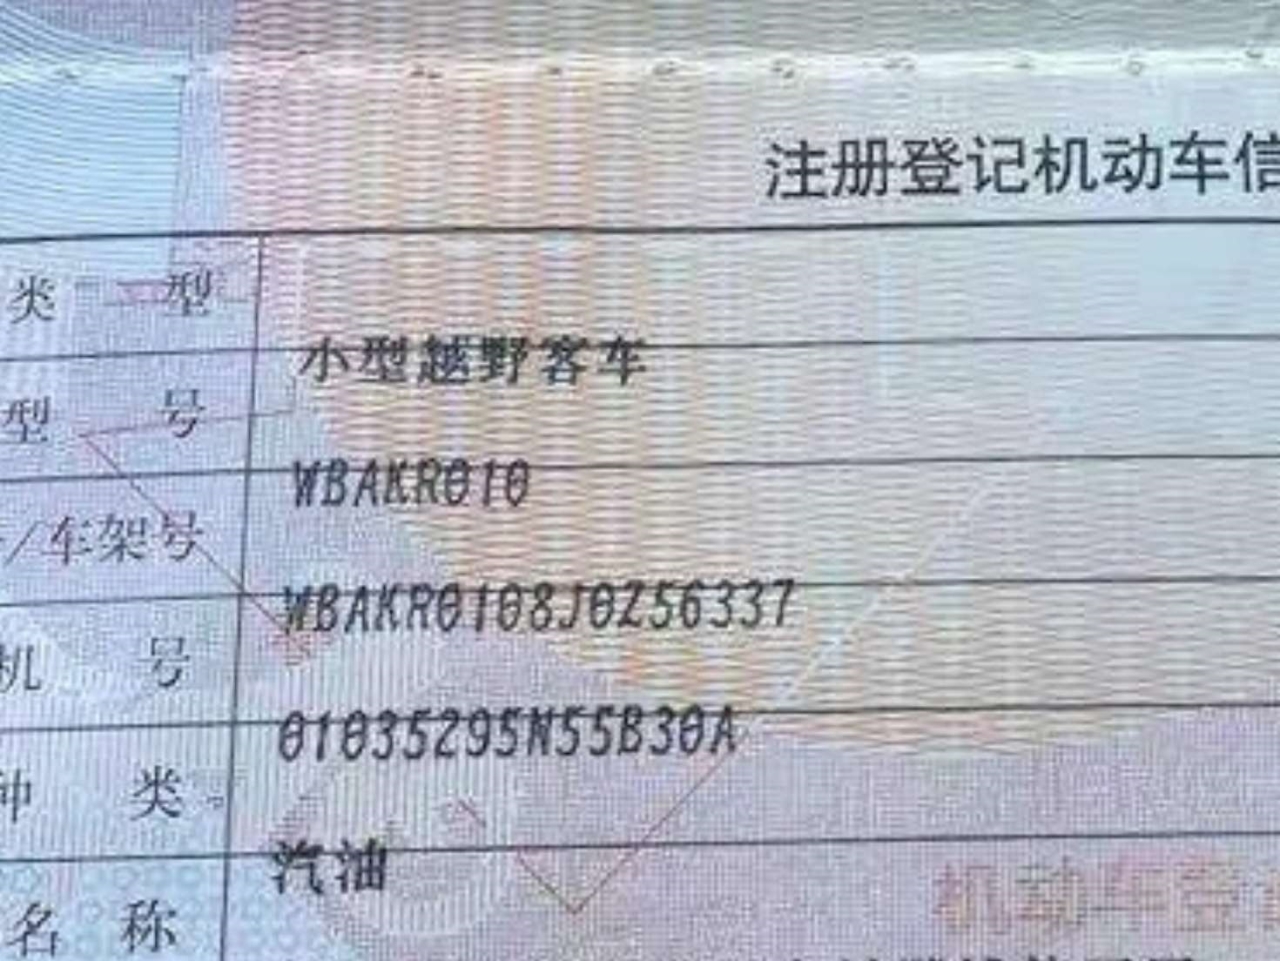 注册登记机动车信
类 型
小型越野客车
型 号
WBAKR010
/车架号
WBAKR0108J0Z56337
机 号
01035295N55B30A
种 类
汽油
机动车登
名 称